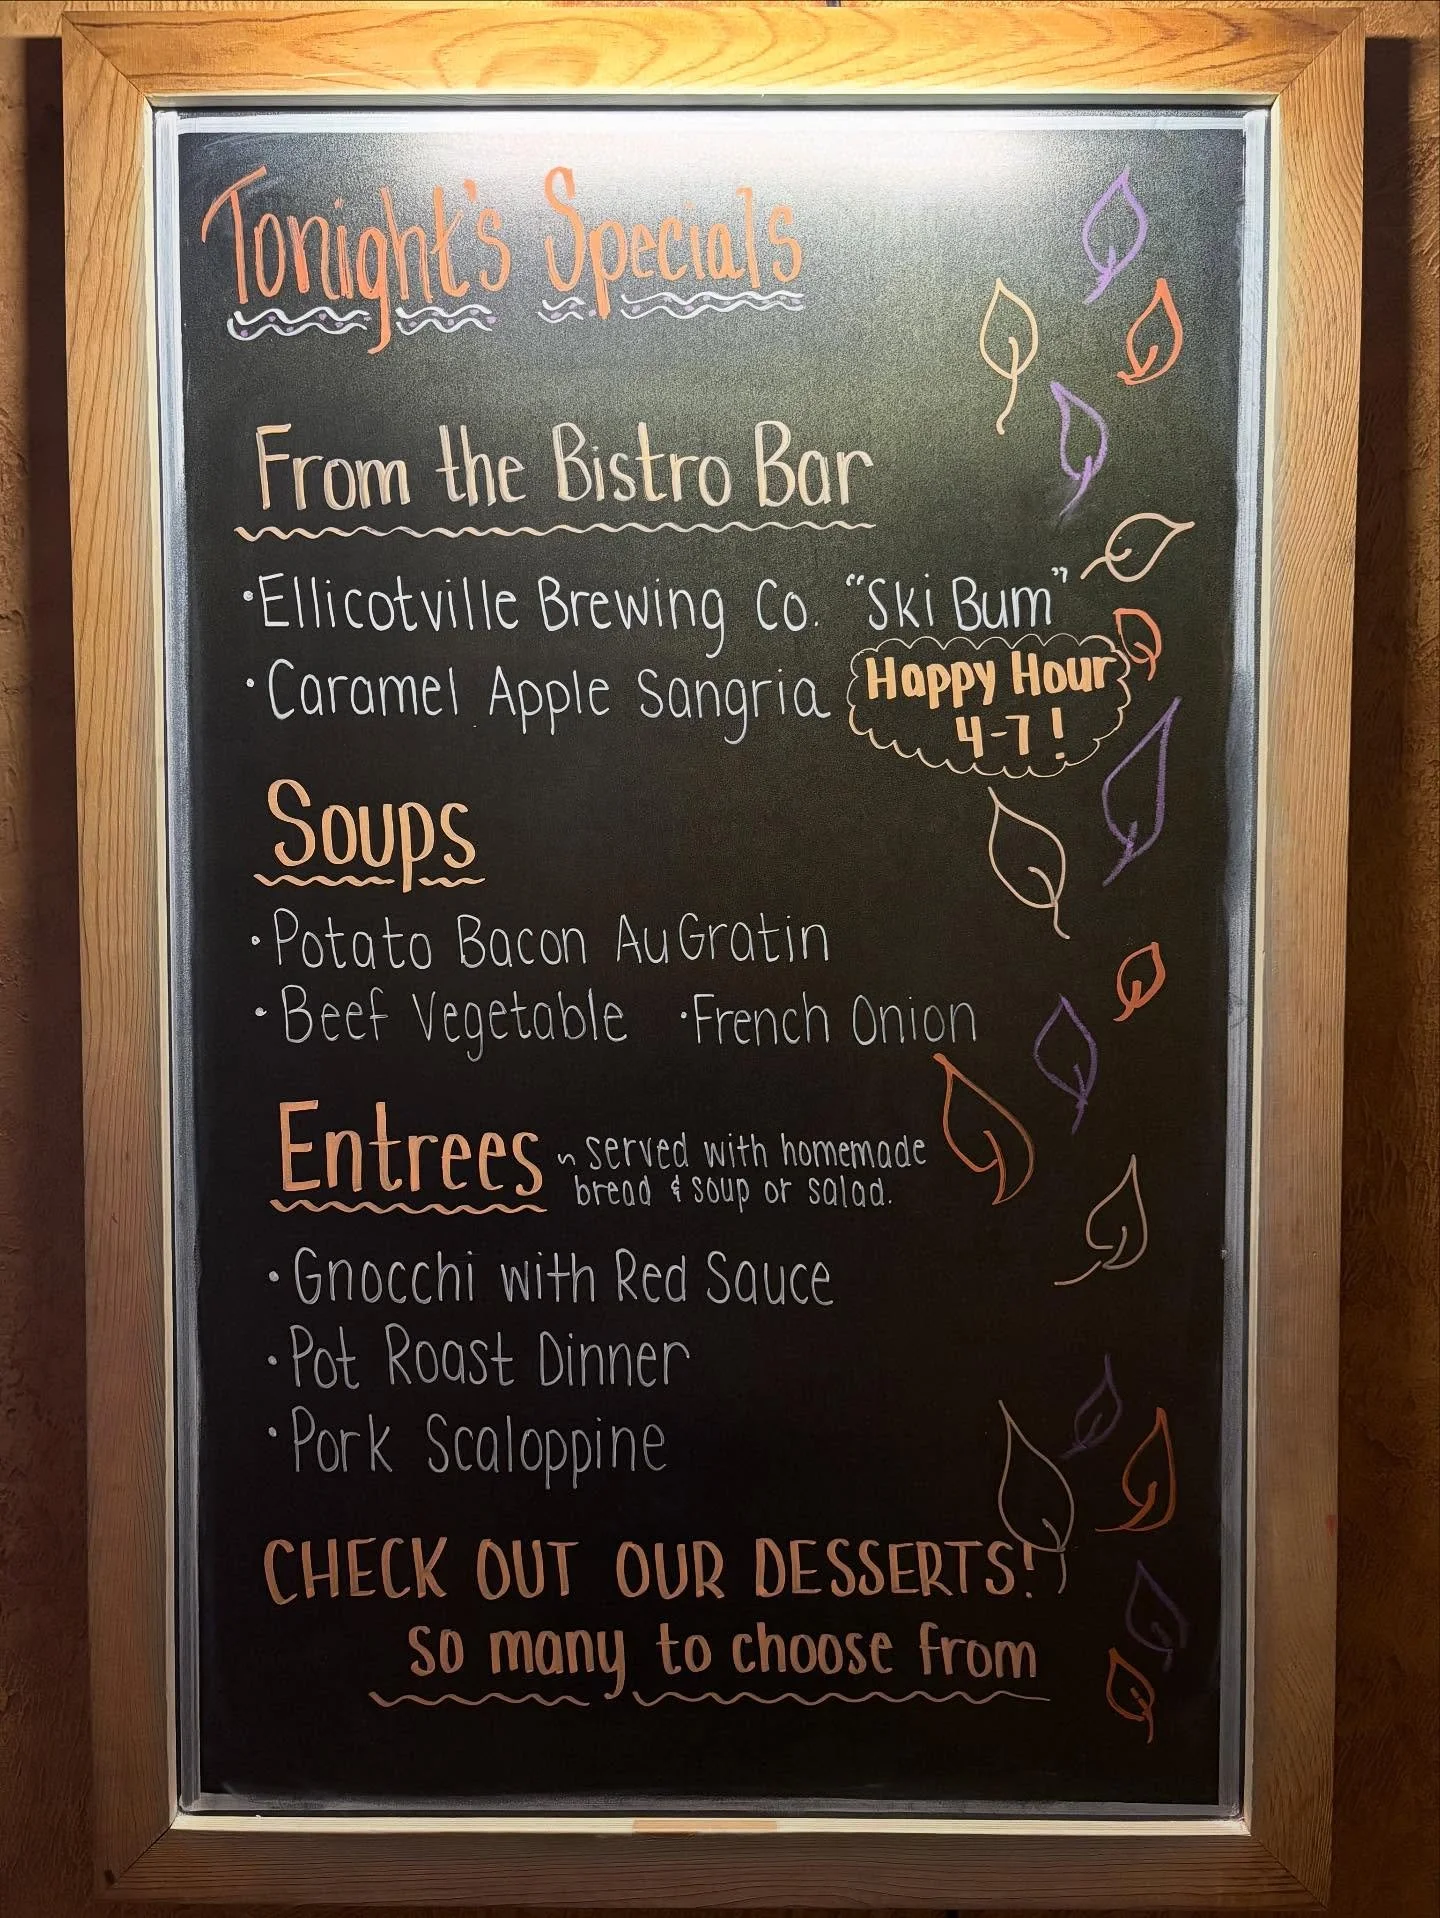 Tonight's Specials
From the Bistro Bar
•Ellicotville Brewing Co. "Ski Bum"
•Caramel Apple Sangria
Happy Hour
4-7!
Soups
•Potato Bacon Au Gratin
•Beef Vegetable •French Onion
Entrees ~ served with homemade
bread & soup or salad.
•Gnocchi with Red Sauce
•Pot Roast Dinner
•Pork Scaloppine
CHECK OUT OUR DESSERTS!
so many to choose from